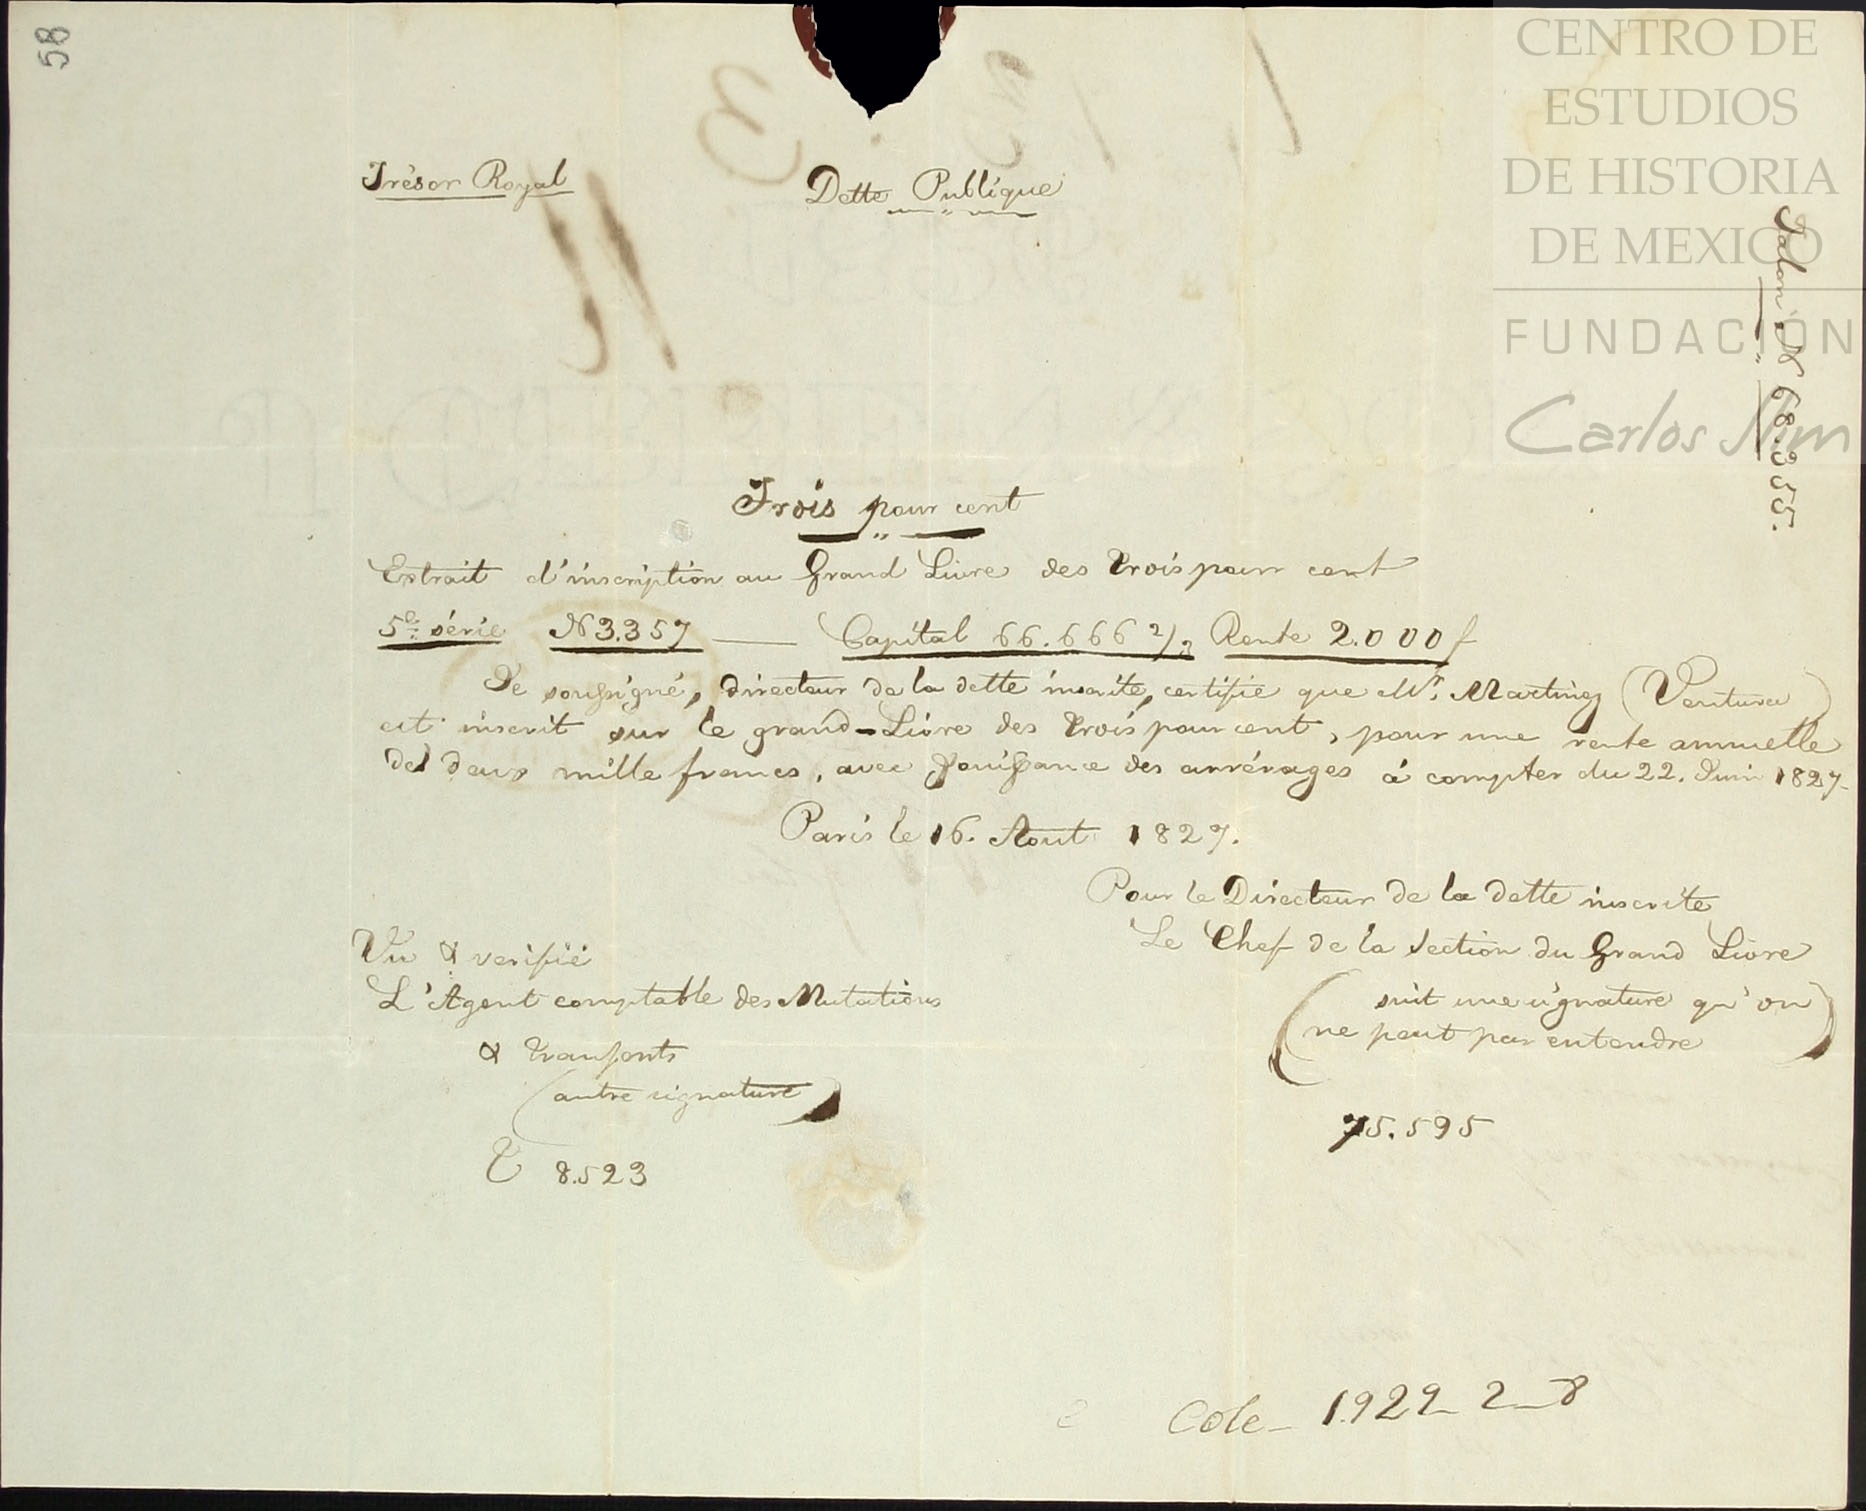 58
CENTRO DE
ESTUDIOS
DE HISTORIA
DE MEXICO
FUNDACIÓN
Carlos Slim
Talon N 68.355.
Trésor Royal
Dette Publique
Trois pour cent
Extrait d'inscription au Grand Livre des trois pour cent
5e série N 3.357 — Capital 66.666 2/3 Rente 2.000 f
Je soussigné, directeur de la dette inscrite, certifie que Mr. Martinez (Ventura)
est inscrit sur le grand-Livre des trois pour cent, pour une rente annuelle
de deux mille francs, avec jouissance des arrérages à compter du 22. Juin 1827.
Paris le 16. Aout 1827.
Pour le Directeur de la dette inscrite
Le Chef de la Section du Grand Livre
(suit une signature qu'on
ne peut pas entendre)
75.595
Vu & verifié
L'Agent comptable des Mutations
& transferts
(autre signature)
T 8.523
Cole- 1.929_ 2_8